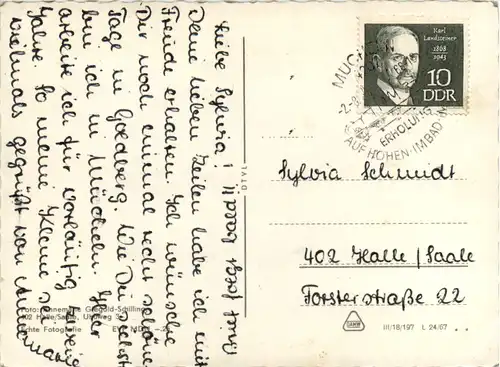 Liebe Sylvia!
Deine lieben Zeilen habe ich mit
Freude erhalten. Ich wünsche
Dir noch einmal recht schöne
Tage in Goldberg. Wie Du siehst
bin ich in Mücheln. Hier
arbeite ich für vorläufig
Jahre. So meine Kleine sei
vielmals gegrüßt von Annemarie
Karl
Landsteiner
1868
1943
10
DDR
MÜCHELN
ERHOLUNG
AUF HOHEN IM BAD
Sylvia Schmidt
402 Halle / Saale
Forsterstraße 22
Foto: Annemarie Giegold-Schilling
402 Halle/Saale, Uhlweg 3
Echte Fotografie
III/18/197 L 24/67